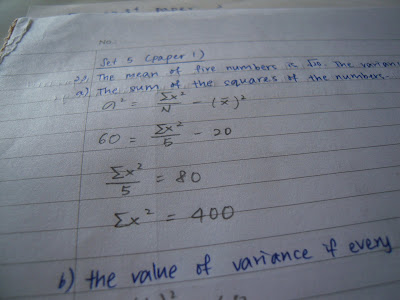 No.
Set 5 (paper 1)
The mean of five numbers is √20. The varian
a) The sum of the squares of the numbers.
σ² = Σx²/N - (x̄)²
60 = Σx²/5 - 20
Σx²/5 = 80
Σx² = 400
b) the value of variance if every